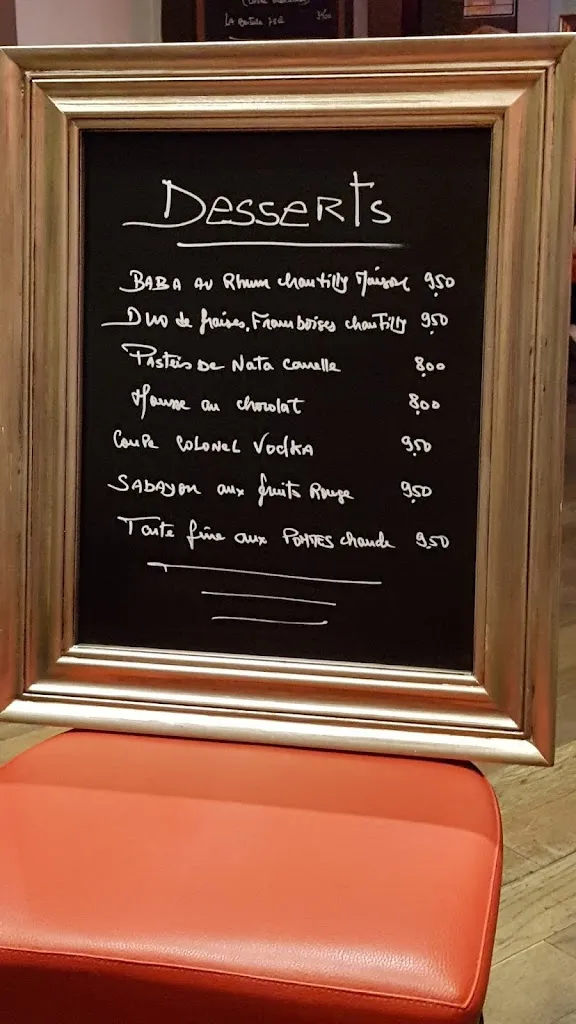 LA Bouteille 75cl
Desserts
BABA au Rhum chantilly Maison 9,50
Duo de fraises, Framboises chantilly 9,50
Pasteis De Nata canelle 8,00
Mousse au chocolat 8,00
Coupe COLONEL Vodka 9,50
SABAYON aux fruits Rouge 9,50
Tarte fine aux POMMES chaude 9,50